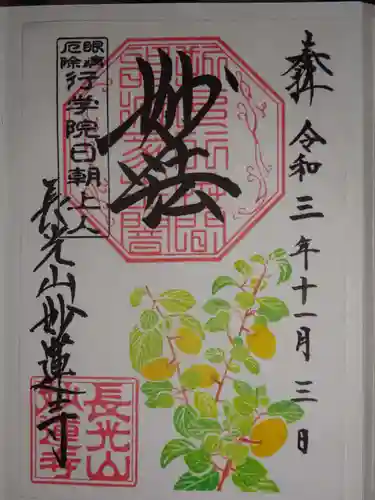 奉拝
令和三年十一月三日
妙法
眼病
厄除
行学院日朝上人
長光山妙蓮寺
長光山
妙蓮寺